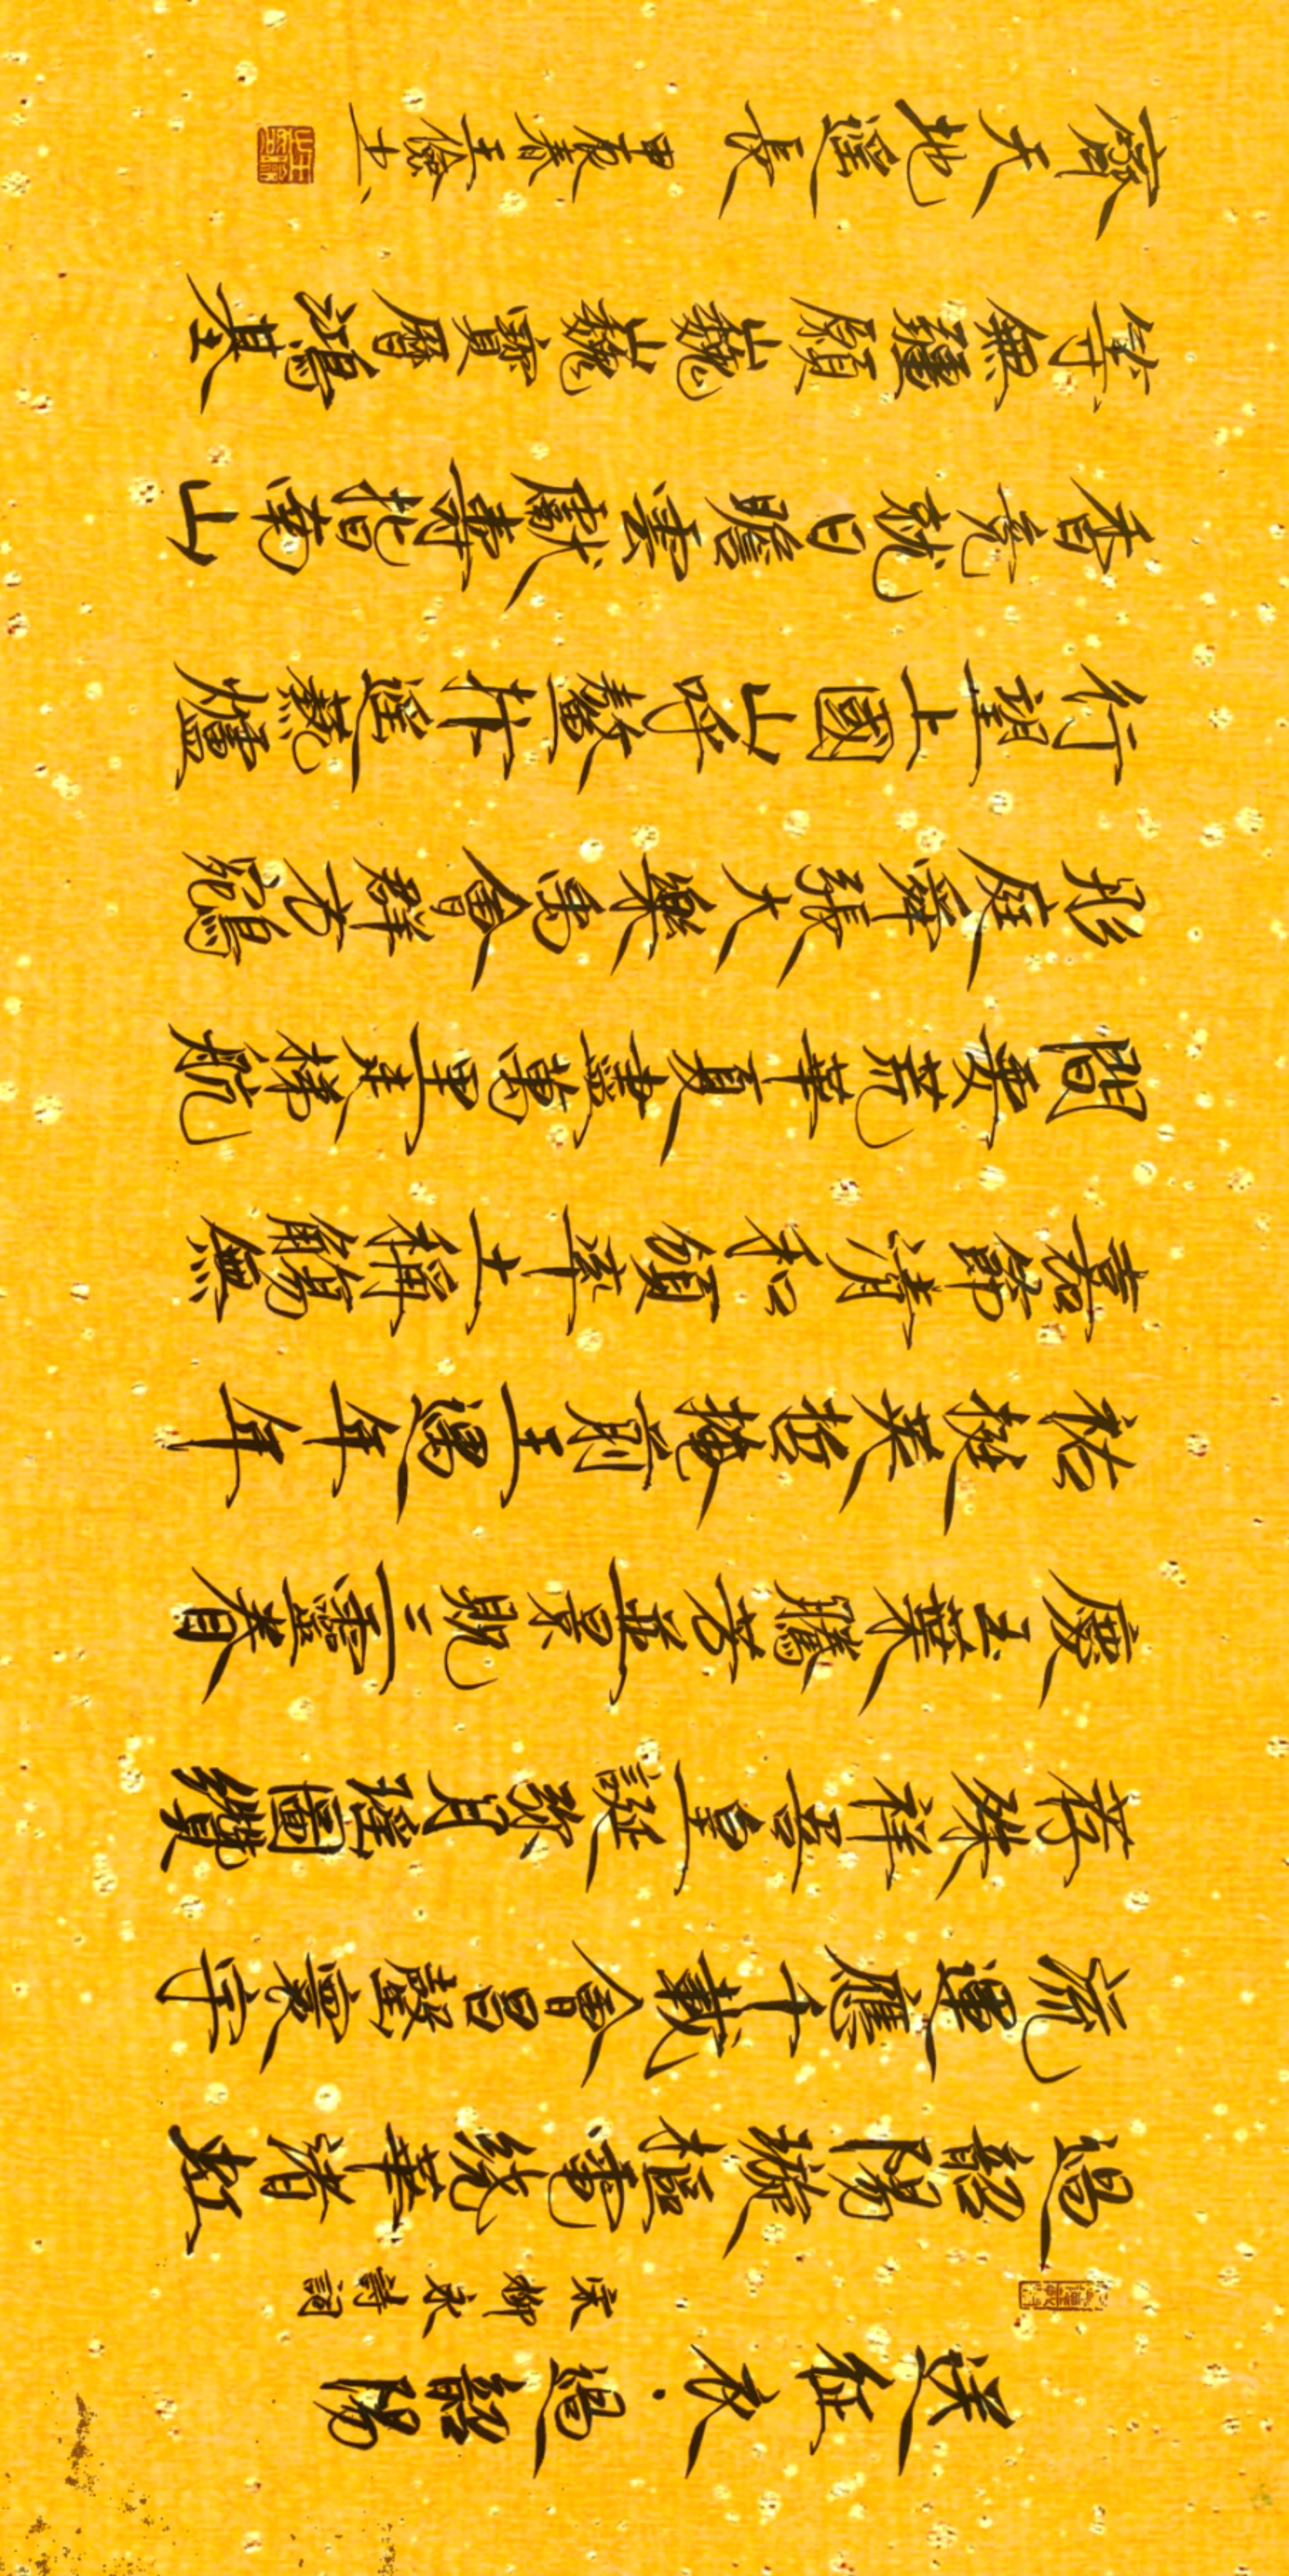 送征衣·過韶陽
宋柳永詩詞
過韶陽璇樞電繞華渚虹
流運應千載會昌罄寰宇
薦殊祥吾皇誕彌月瑤圖纘
慶玉葉騰芳並景貺三靈眷
祐挺英哲掩前王遇年年
嘉節清和頒率土稱觴無
間要荒華夏盡萬里走梯航
彤庭舜張大樂禹會群方鵷
行望上國山呼鰲抃遙爇爐
香竟就日瞻雲獻壽指南山
等無疆願巍巍寶曆鴻基
齊天地遙長
甲辰春王儉